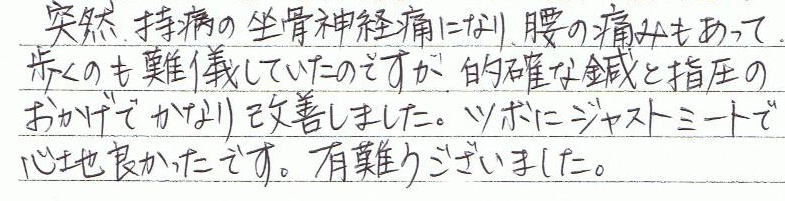 突然、持病の坐骨神経痛になり、腰の痛みもあって、
歩くのも難儀していたのですが、的確な鍼と指圧の
おかげでかなり改善しました。ツボにジャストミートで
心地良かったです。有難うございました。